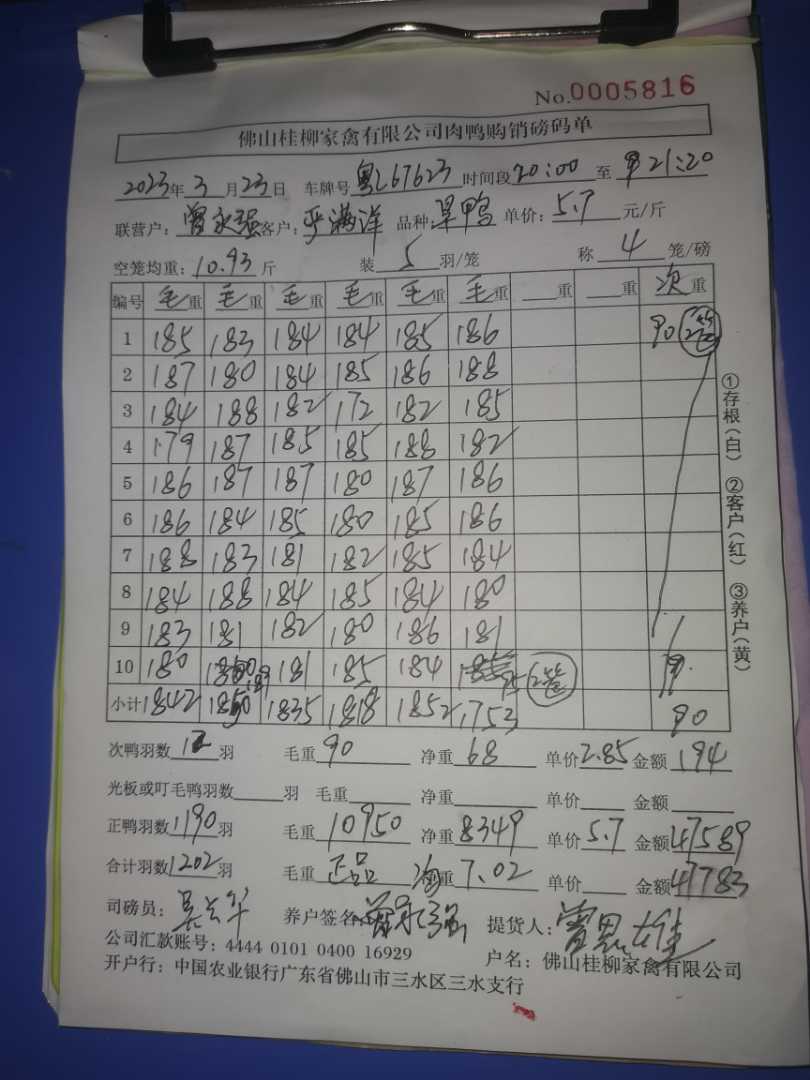 No.0005816
佛山桂柳家禽有限公司肉鸭购销磅码单
2023年3月23日 车牌号 粤L67623 时间段 20:00 至 21:20
联营户: 曾永强 客户: 严满洋 品种: 旱鸭 单价: 5.7 元/斤
空笼均重: 10.93 斤 装 5 羽/笼 称 4 笼/磅
编号 毛重 毛重 毛重 毛重 毛重 毛重 重 重 次重
1 185 183 184 184 185 186 90 2笼
2 187 180 184 185 186 188
3 184 188 182 172 182 185
4 179 187 185 185 188 182
5 186 187 187 180 187 186
6 186 184 185 180 185 186
7 188 183 181 182 185 184
8 184 188 184 185 184 180
9 183 181 182 180 186 181
10 180 181 185 184 95 2笼
小计 1842 1850 1835 1818 1852 1753 90
次鸭羽数 12 羽 毛重 90 净重 68 单价 2.85 金额 194
光板或叮毛鸭羽数 羽 毛重 净重 单价 金额
正鸭羽数 1190 羽 毛重 10950 净重 8349 单价 5.7 金额 47589
合计羽数 1202 羽 毛重 正品 净重 7.02 单价 金额 47783
司磅员: 养户签名: 曾永强 提货人:
公司汇款账号: 4444 0101 0400 16929 户名: 佛山桂柳家禽有限公司
开户行: 中国农业银行广东省佛山市三水区三水支行
①存根(白) ②客户(红) ③养户(黄)